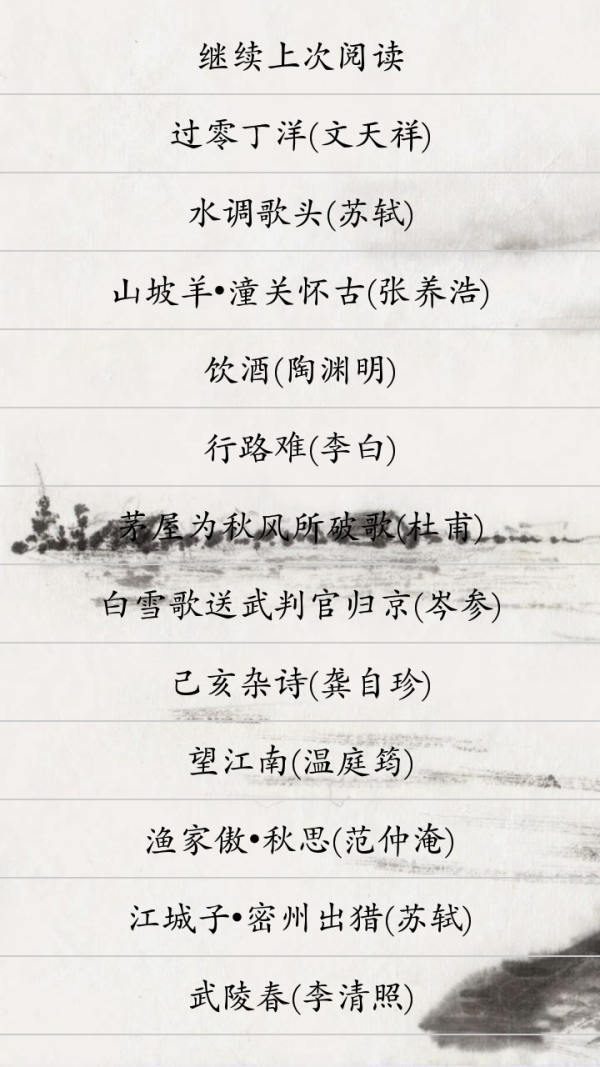 继续上次阅读
过零丁洋(文天祥)
水调歌头(苏轼)
山坡羊•潼关怀古(张养浩)
饮酒(陶渊明)
行路难(李白)
茅屋为秋风所破歌(杜甫)
白雪歌送武判官归京(岑参)
己亥杂诗(龚自珍)
望江南(温庭筠)
渔家傲•秋思(范仲淹)
江城子•密州出猎(苏轼)
武陵春(李清照)